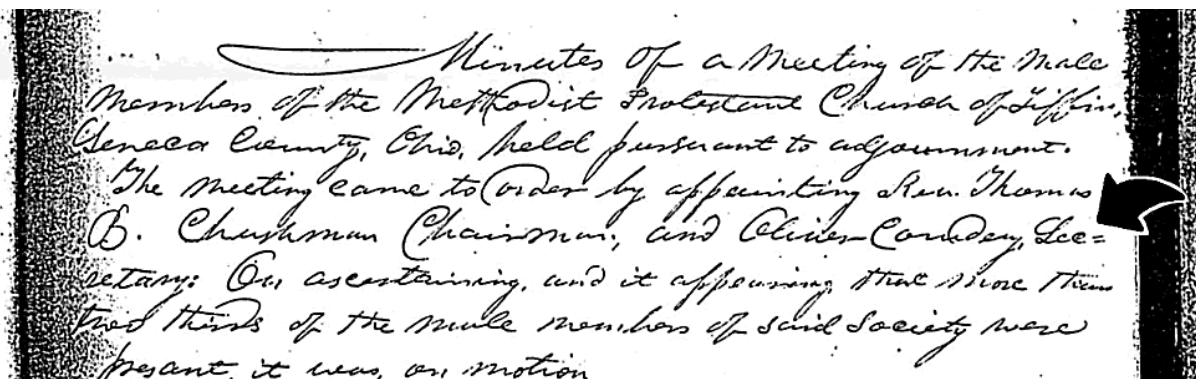 Minutes of a Meeting of the Male
Members of the Methodist Protestant Church of Tiffin,
Seneca County, Ohio, held pursuant to adjournment.
The meeting came to order by appointing Rev. Thomas
B. Chairman, and Oliver Cowdery, Sec=
retary: On ascertaining, and it appearing that more than
two thirds of the male members of said Society were
present, it was, on motion